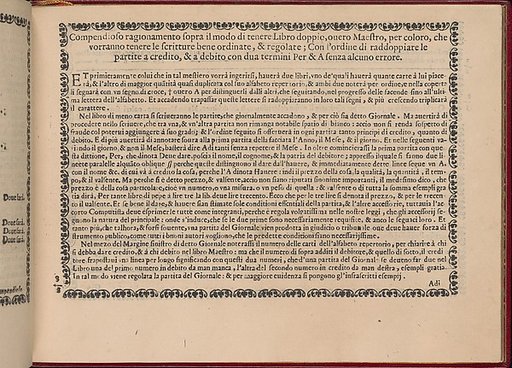 Compendioso ragionamento sopra il modo di tenere Libro doppio, overo Maestro, per coloro, che
vorranno tenere le scritture bene ordinate, & regolate; Con l'ordine di raddoppiare le
partite a credito, & a debito con dua termini Per & A senza alcuno errore.
ET primieramente colui che in tal mestiero vorrà ingerirsi, haverà due libri, uno de'quali haverà quante carte à lui piace-
rà, & l'altro di maggior quātità quasi duplicata col suo alfabeto repertorio, & ambi due noterà per ordine, & nella coperta
li segnarà con un segno di croce, ò vero A per distinguerli dalli altri, che seguirando, nel progresso delle facende sino all'ulti-
ma lettera dell'alfabeto. Et accadendo trapassar queste lettere si radoppiaranno in loro tali segni, & più crescendo triplicarà
il carattere.
Nel libro di meno carta si scriveranno le partite, che giornalmente accadono, & per ciò sia detto Giornale. Ma avertirà di
procedere nello scrivere, che tra una, & un'altra partita non rimanga notabile spatio di bianco: acciò non si renda sospetto di
fraude col potervi aggiungere à suo grado; & l'ordine seguito si osservarà in ogni partita tanto principal di credito, quanto di
debito. E di più avertirà di annotare sopra alla prima partita della facciata l'Anno, il Mese, & il giorno. Et nelle seguenti va-
riando il giorno, & non il Mese, basterà dire Adi tanti senza repetere il Mese. In oltre cominciarà la prima partita con que-
sta dittione, Per, che dinota Deve dare. poscia il nome, il cognome, & la patria del debitore; appresso il quale si fanno due li-
neete paralelle alquāto oblique // perche queste distinguono il dare dall'havere, & immediatamente dette linee segue un A.
con il nome &c. di cui và à credito la cosa, perche l'A dinota Havere: indi il prezzo della cosa, la qualità, la quantità, il tem-
po, & il valsente. Ma perche sia detto prezzo, & valsente, acciò non siano riputati sinonimi importanti, il medesimo dico, che
prezzo è della cosa particolare, cioè un numero, o una misura, o un peso di quella &c. & valsente o di tutta la somma esempli gra-
tia dirà, Per tante libre di pepe à lire tre la libra lire trecento. Ecco che per le tre lire si denota il prezzo, & per le trecento
il valsente. Et se bene il dare, & havere siano state sole conditioni essentiali della partita, & l'altre accessorie, tuttavia l'ac-
corto Computista deve esprimerle tutte integralmente, perche è regola volgatissima nelle nostre leggi, che gli accessorij se-
guono la natura del principale: onde s'induce, che se le due prime sono necessariamente requisite, & anco le seguaci loro. Et
tanto più, che tal'hora, & forsi sovente, una partita del Giornale vien prodotta in giudicio o tribunale one deve haver forza di
strumento publico, onde tutti i buoni autori vogliono, che le predette conditioni siano necessarijssime.
Nel mezo del Margine sinistro di detto Giornale noterassi il numero delle carti dell'alfabeto repertorio, per chiarire à chi
si debba dare credito, & à chi debito nel libro Maestro: ma che il numero di sopra additi il debitore, & quello di sotto, il credi-
tore frapostovi una linea per luogo significando con questi dua numeri, che d'una partita del Giornale se devono far due nel
Libro una del primo numero in debito da man manca, l'altra del secondo numero in credito da man destra, esempli gratia.
In tal modo viene regolata la partita del Giornale: & per maggiore evidenza si pongono gl'infrascritti esempij.
Adi